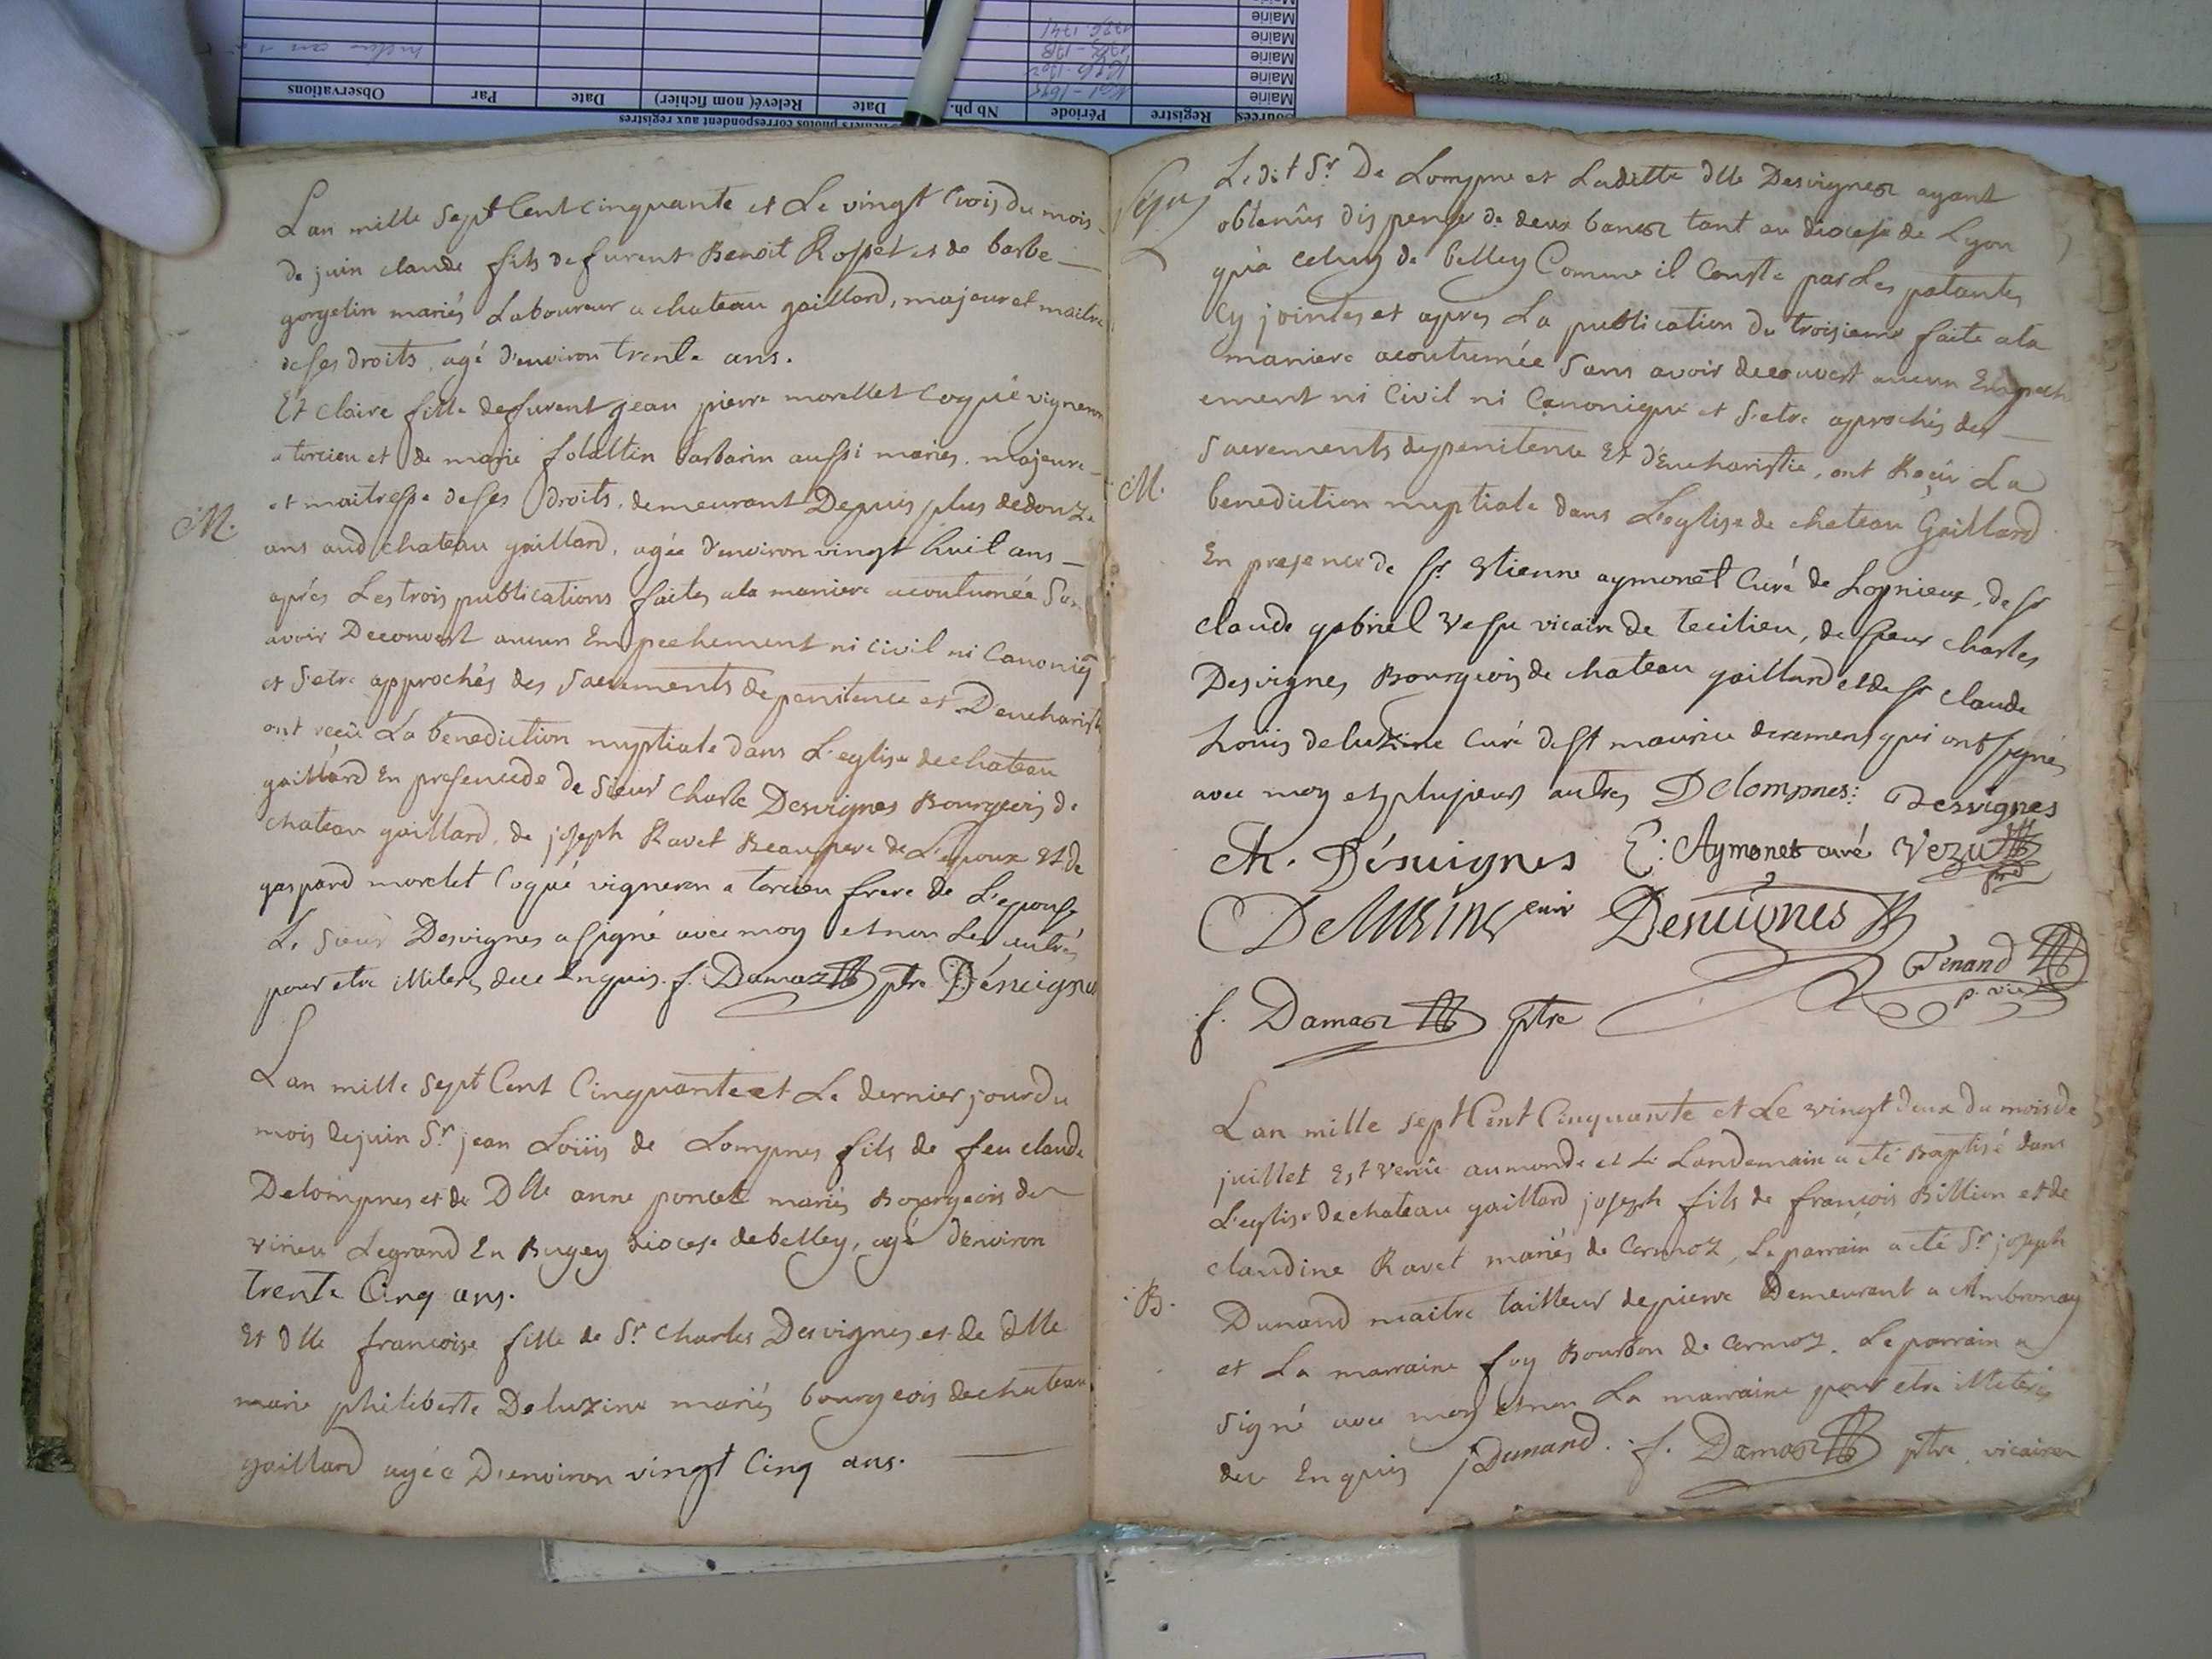 Sources Registre Période Nb ph. Date Relevé (nom fichier) Date Par Observations
Mairie
Mairie
Mairie
Mairie
Mairie
Lan mille sept Cent cinquante et Le vingt trois du mois
de juin claude fils de furent Benoit Rosset et de barbe
gorgelin mariés Laboureur a chateau gaillard, majeur et maitre
de ses droits, agé d'environ trente ans.
Et claire fille defurent jean pierre morellet Coqué vigneron
a torcieu et de marie barbarin aussi mariés, majeure
et maitresse de ses droits, demeurant Depuis plus dedouze
ans aud chateau gaillard, agée d'environ vingt huit ans
aprés Les trois publications faites ala maniere acoutumée
avoir Decouvert aucun Empechement ni civil ni Canoniq
et S'etre approchés des Sacrements de penitence et D'eucharist
ont reçû La benediction nuptiale dans L'eglise dechateau
gaillard En presence de de Sieur Charle Desvignes Bourgeois de
chateau gaillard, de joseph Ravet Beaupere de L'epoux Et de
gaspard morelet Coqué vigneron a torcieu frere de L'epouse
Le Sieur Desvignes a signé avec moy et non Les autres
pour etre illiteres dece Enquis. f. Damaz ptre Désvignes
M.
Lan mille sept Cent Cinquante et Le dernier jour du
mois dejuin Sr jean Loüis de Lompnes fils de feu claude
Delompnes et de Dlle anne poncet mariés Bourgeois de
virieu Legrand En Bugey diocese debelley, agé d'environ
trente Cinq ans.
Et dlle francoise fille de Sr Charles Desvignes et de dlle
marie philiberte Deluzine mariés bourgeois dechateau
gaillard agée D'environ vingt Cinq ans.
Ledit Sr De Lompne et Laditte dlle Desvignes ayant
obtenûs dispense de deux bancs tant au diocese de Lyon
qu'a celuy de belley Comme il Conste par Les patantes
Cy jointes et apres La publication du troisieme faite ala
maniere acoutumée Sans avoir decouvert aucun Empech
ement ni Civil ni Canonique et S'etre aprochés des
Sacrements depenitence Et d'Eucharistie, ont Reçu La
M.
benediction nuptiale dans L'eglise de chateau Gaillard
En presence de Sr Etienne aymonet Curé de Lognieux, de Sr
claude gabriel Vesu vicaire de tecilieu, de sieur charles
Desvignes Bourgeois de chateau gaillard et de Sr claude
Loüis deluzine Curé deSt maurice deremens qui ont signés
avec moy et plusieurs autres Delompnes: Desvignes
Ch. Désvignes E: Aymonet curé Vezu
Deluzine curé Desvignes
Tenand p. vic
f. Damaz ptre
Lan mille sept Cent Cinquante et Le vingt deux du mois de
juillet Est venû au monde et Le Landemain a eté Baptisé dans
L'eglise dechateau gaillard joseph fils de francois Billion et de
claudine Ravet mariés de Cormoz, Le parrain a eté Sr joseph
B.
Dunand maitre tailleur depierre Demeurant a Ambronay
et La marraine foy Bourbon de Cormoz. Le parrain a
signé avec moy et non La marraine pour etre illiterée
dece Enquis jDunand. f. Damaz ptre vicaire